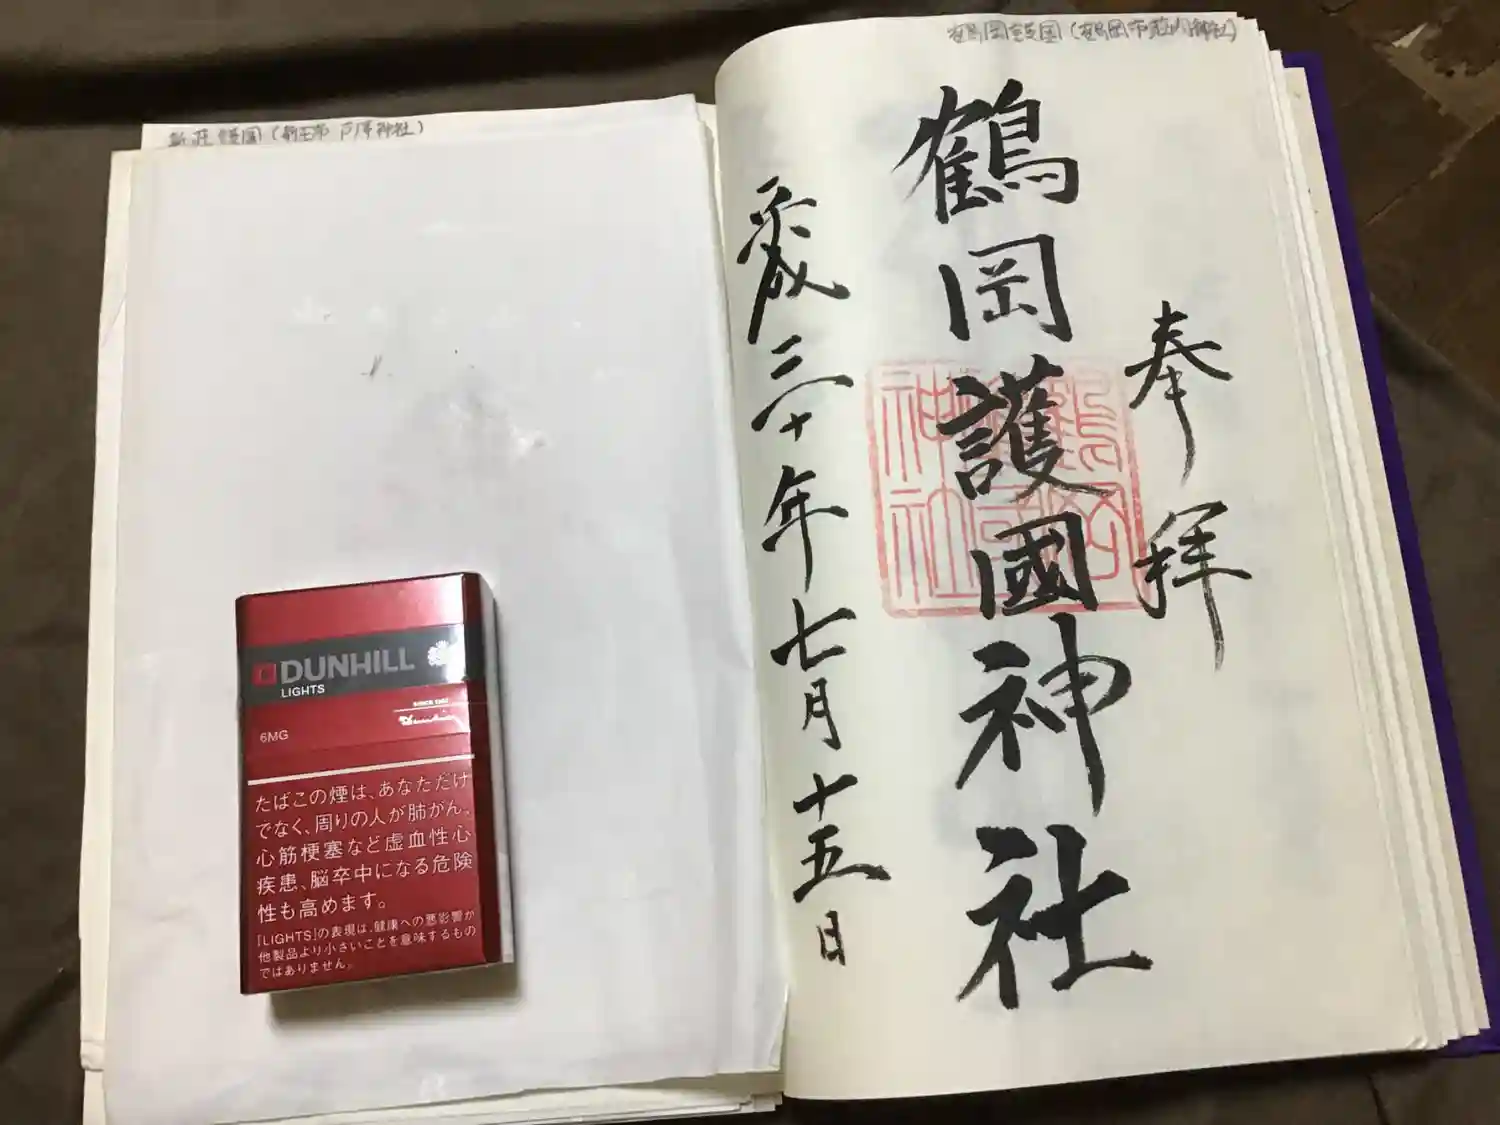 新荘護国(新庄市 戸澤神社)
鶴岡護国(鶴岡市荘内神社)
奉拝
鶴岡護國神社
平成三十年七月十五日
鶴岡護國神社
DUNHILL
LIGHTS
SINCE 1907
6MG
たばこの煙は、あなただけ
でなく、周りの人が肺がん、
心筋梗塞など虚血性心
疾患、脳卒中になる危険
性も高めます。
「LIGHTS」の表現は、健康への悪影響が
他製品より小さいことを意味するもの
ではありません。